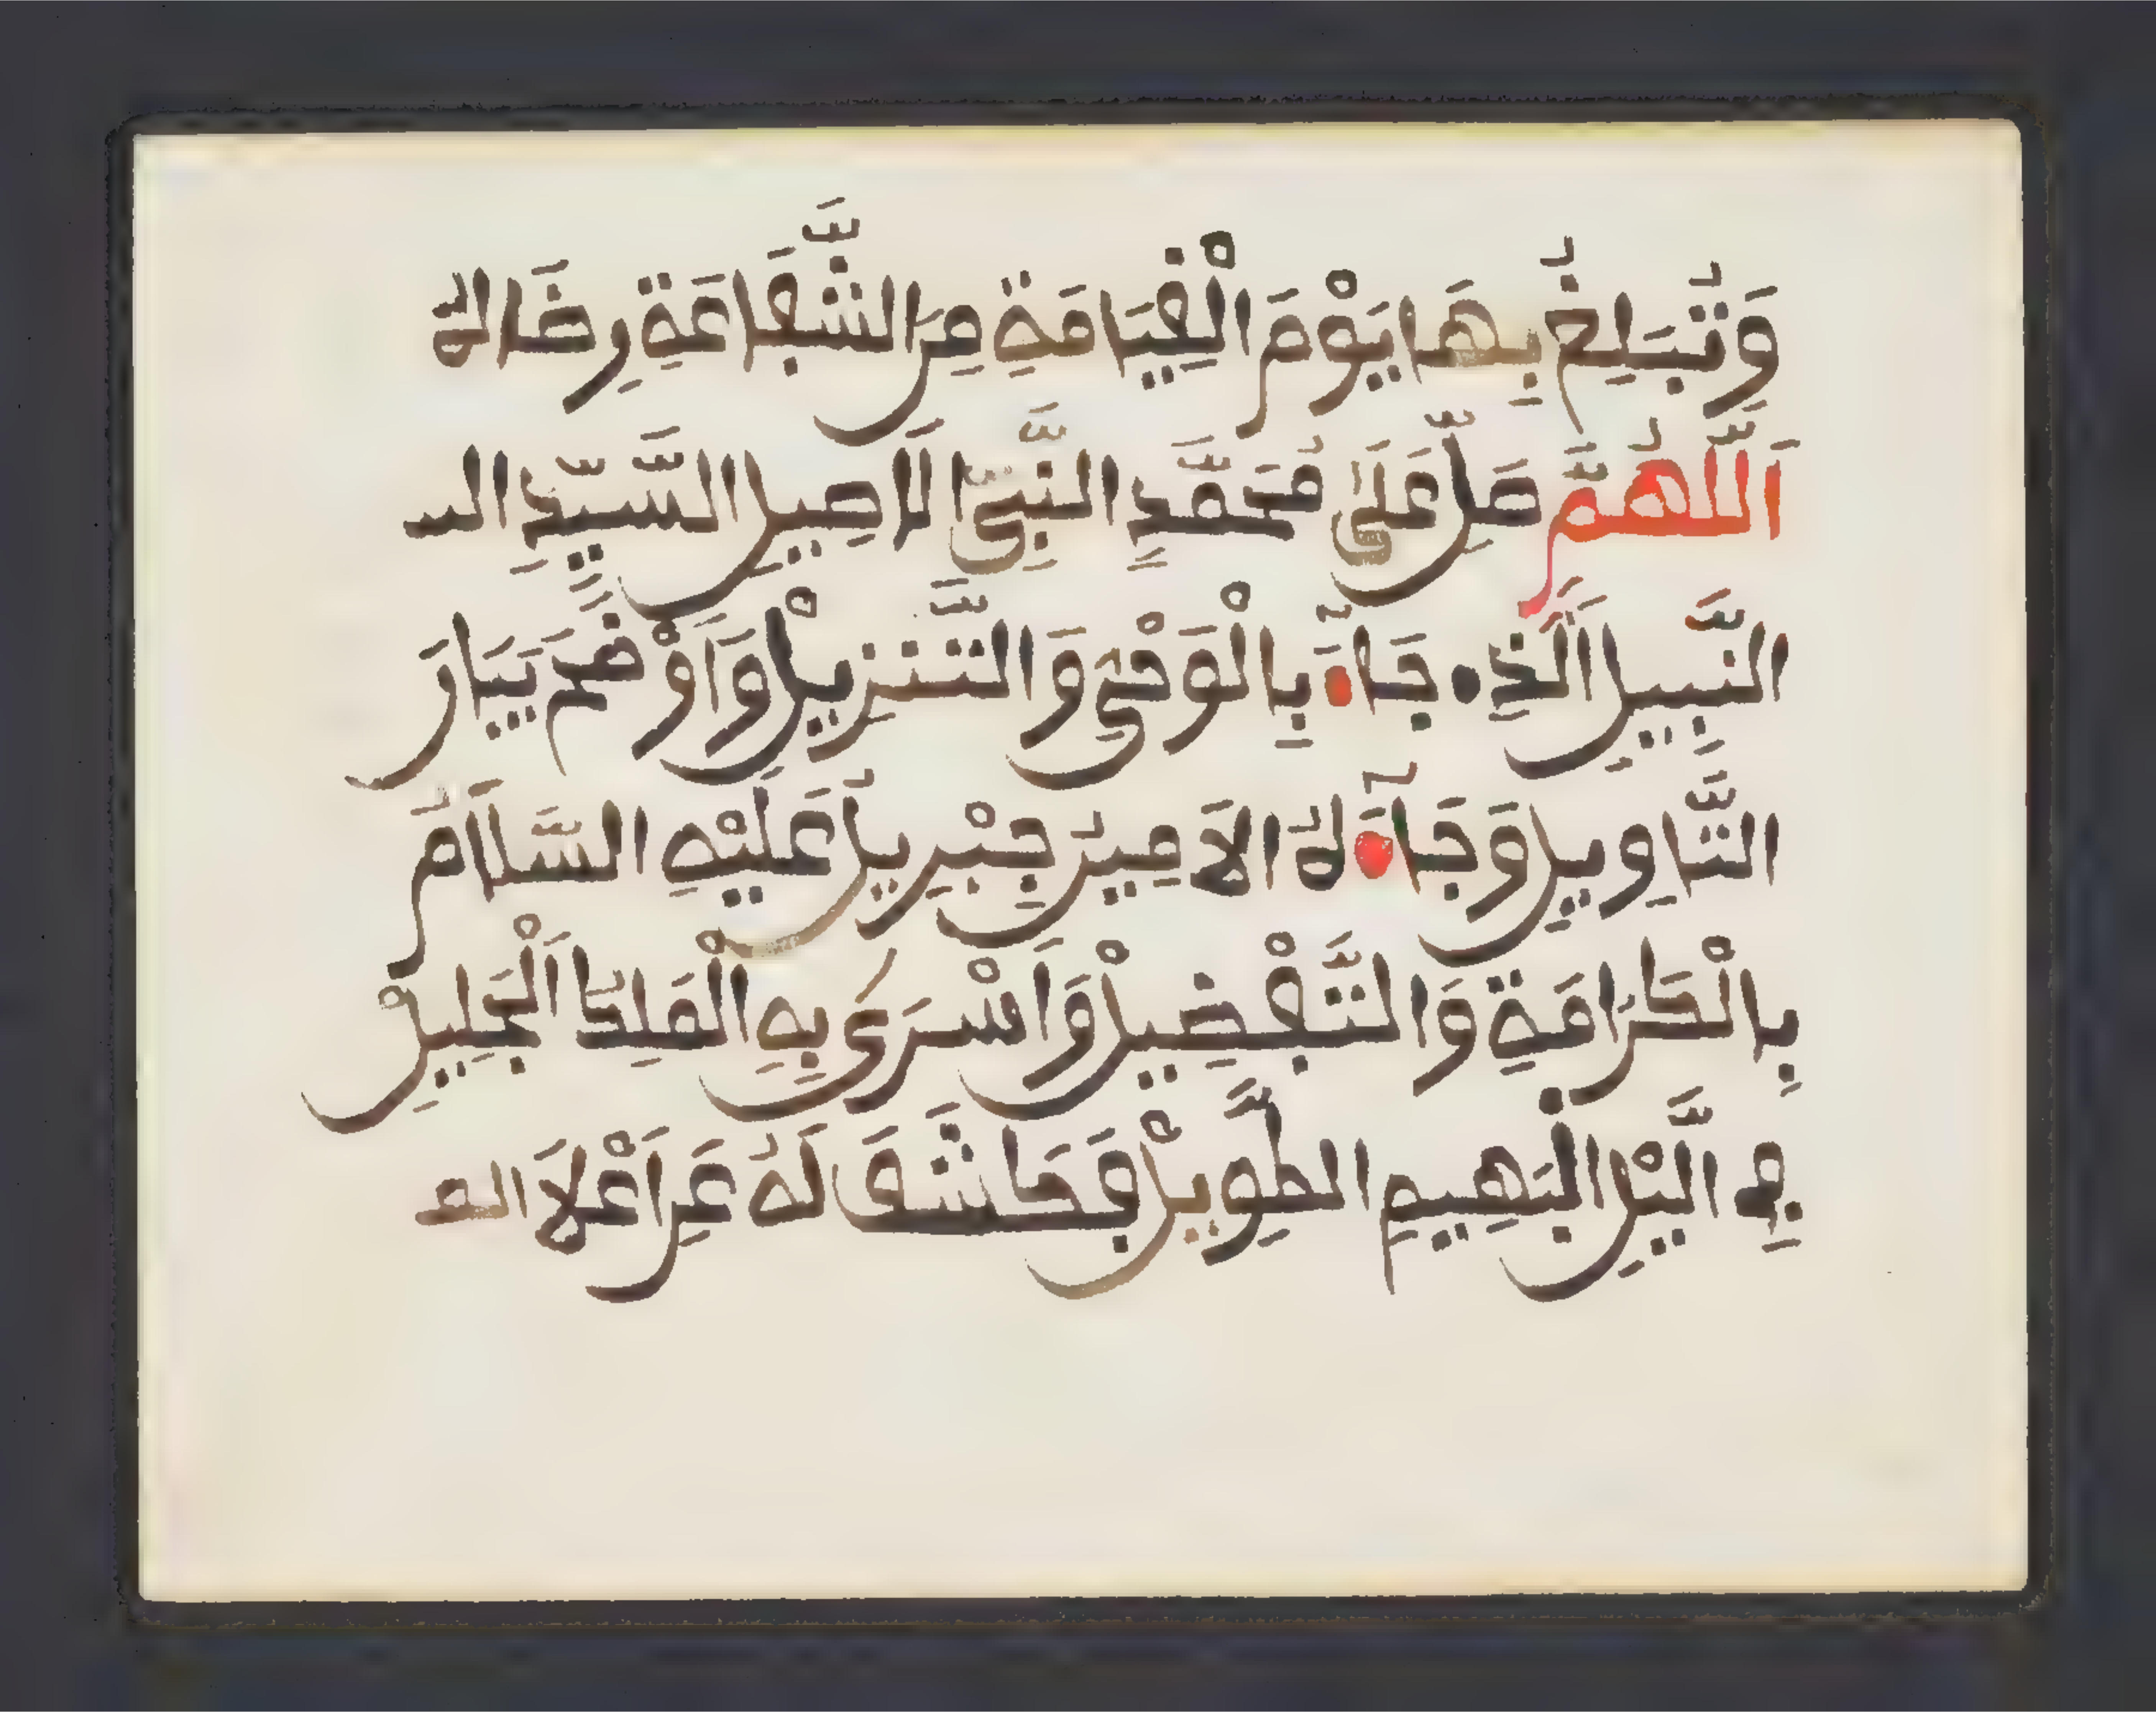 وَتُبَلِغُ بِهَا يَوْمَ الْقِيَامَةِ مِنَ الشَّفَاعَةِ رِضَاهُ
اَللَّهُمَّ صَلِّ عَلَى مُحَمَّدٍ النَّبِيِّ الَاصِيلِ السَّيِّدِ الـ
النَّبِيلِ اَلَّذِے جَآءَ بِالْوَحْيِ وَالتَّنزِيلْ وَاَوْضَحَ بَيَانَ
التَّاوِيلِ وَجَآءَهُ الَامِينُ جِبْرِيلُ عَلَيْهِ السَّلَامُ
بِالْكَرَامَةِ وَالتَّفْضِيلْ وَاَسْرَى بِهِ الْمَلِكُ اَلْجَلِيلْ
فِي اليْلِ الْبَهِيمِ الطَّوِيلْ فَكَاشَفَ لَهُ عَنِ اَعْلَا الم